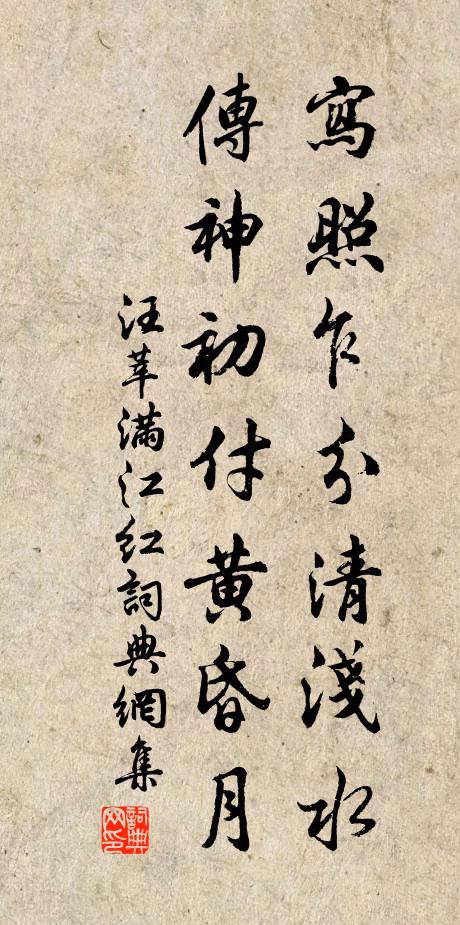 寫照乍分清淺水
傳神初付黄昏月
汪莘滿江紅詞典網集
詞典網印